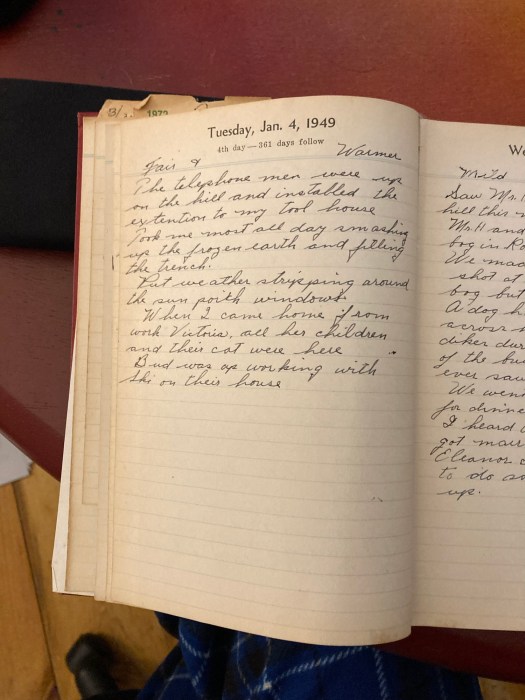 Tuesday, Jan. 4, 1949
4th day—361 days follow
Fair & Warmer
The telephone men were up
on the hill and installed the
extention to my tool house
Took me most all day smashing
up the frozen earth and filling
the trench.
Put weather stripping around
the sun poith windows.
When I came home from
work Victoria, all her children
and their cat were here
Bud was up working with
Ski on their house
We
Mild
Saw Mr. H
hill this
Mr. H and
bog in Ro
We mad
shot at
bog but
A dog h
across
diker dur
of the bu
ever saw
We wen
for dinne
I heard
got marr
Eleanor
to do
up.